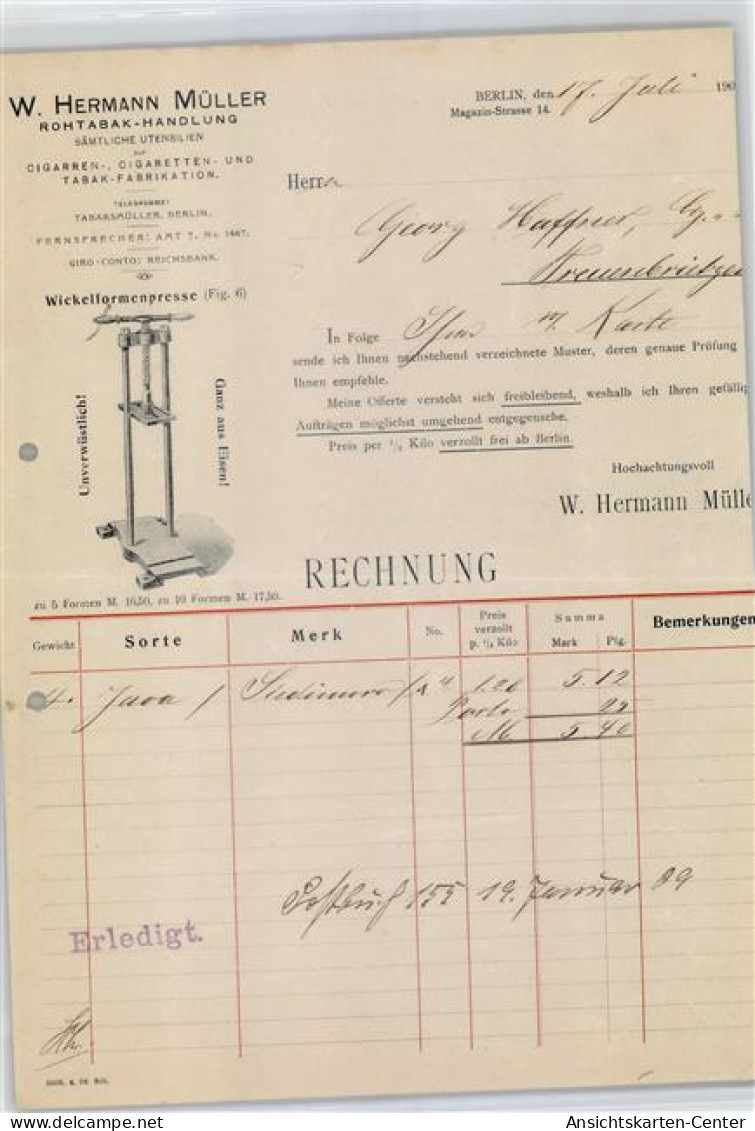 W. HERMANN MÜLLER
ROHTABAK-HANDLUNG
SÄMTLICHE UTENSILIEN
ZUR
CIGARREN-, CIGARETTEN- UND
TABAK-FABRIKATION.
TELEGRAMME:
TABAKSMÜLLER, BERLIN.
FERNSPRECHER: AMT 7. No. 1467.
GIRO-CONTO: REICHSBANK.
BERLIN, den 17. Juli 190
Magazin-Strasse 14.
Herrn
Georg Haffner,
Treuenbrietzen
Wickelformenpresse (Fig. 6)
Unverwüstlich!
Ganz aus Eisen!
zu 5 Formen M. 16,50, zu 10 Formen M. 17,50.
In Folge Ihrer Karte
sende ich Ihnen nachstehend verzeichnete Muster, deren genaue Prüfung
Ihnen empfehle.
Meine Offerte versteht sich freibleibend, weshalb ich Ihren gefällig
Aufträgen möglichst umgehend entgegensehe.
Preis per ½ Kilo verzollt frei ab Berlin.
Hochachtungsvoll
W. Hermann Mülle
RECHNUNG
Gewicht Sorte Merk No. Preis verzollt p. ½ Kilo Summa Mark Pfg. Bemerkungen
4. Java / 1.28 5.12
Porto
M 5.40
155 19. Januar 09
Erledigt.
Ansichtskarten-Center